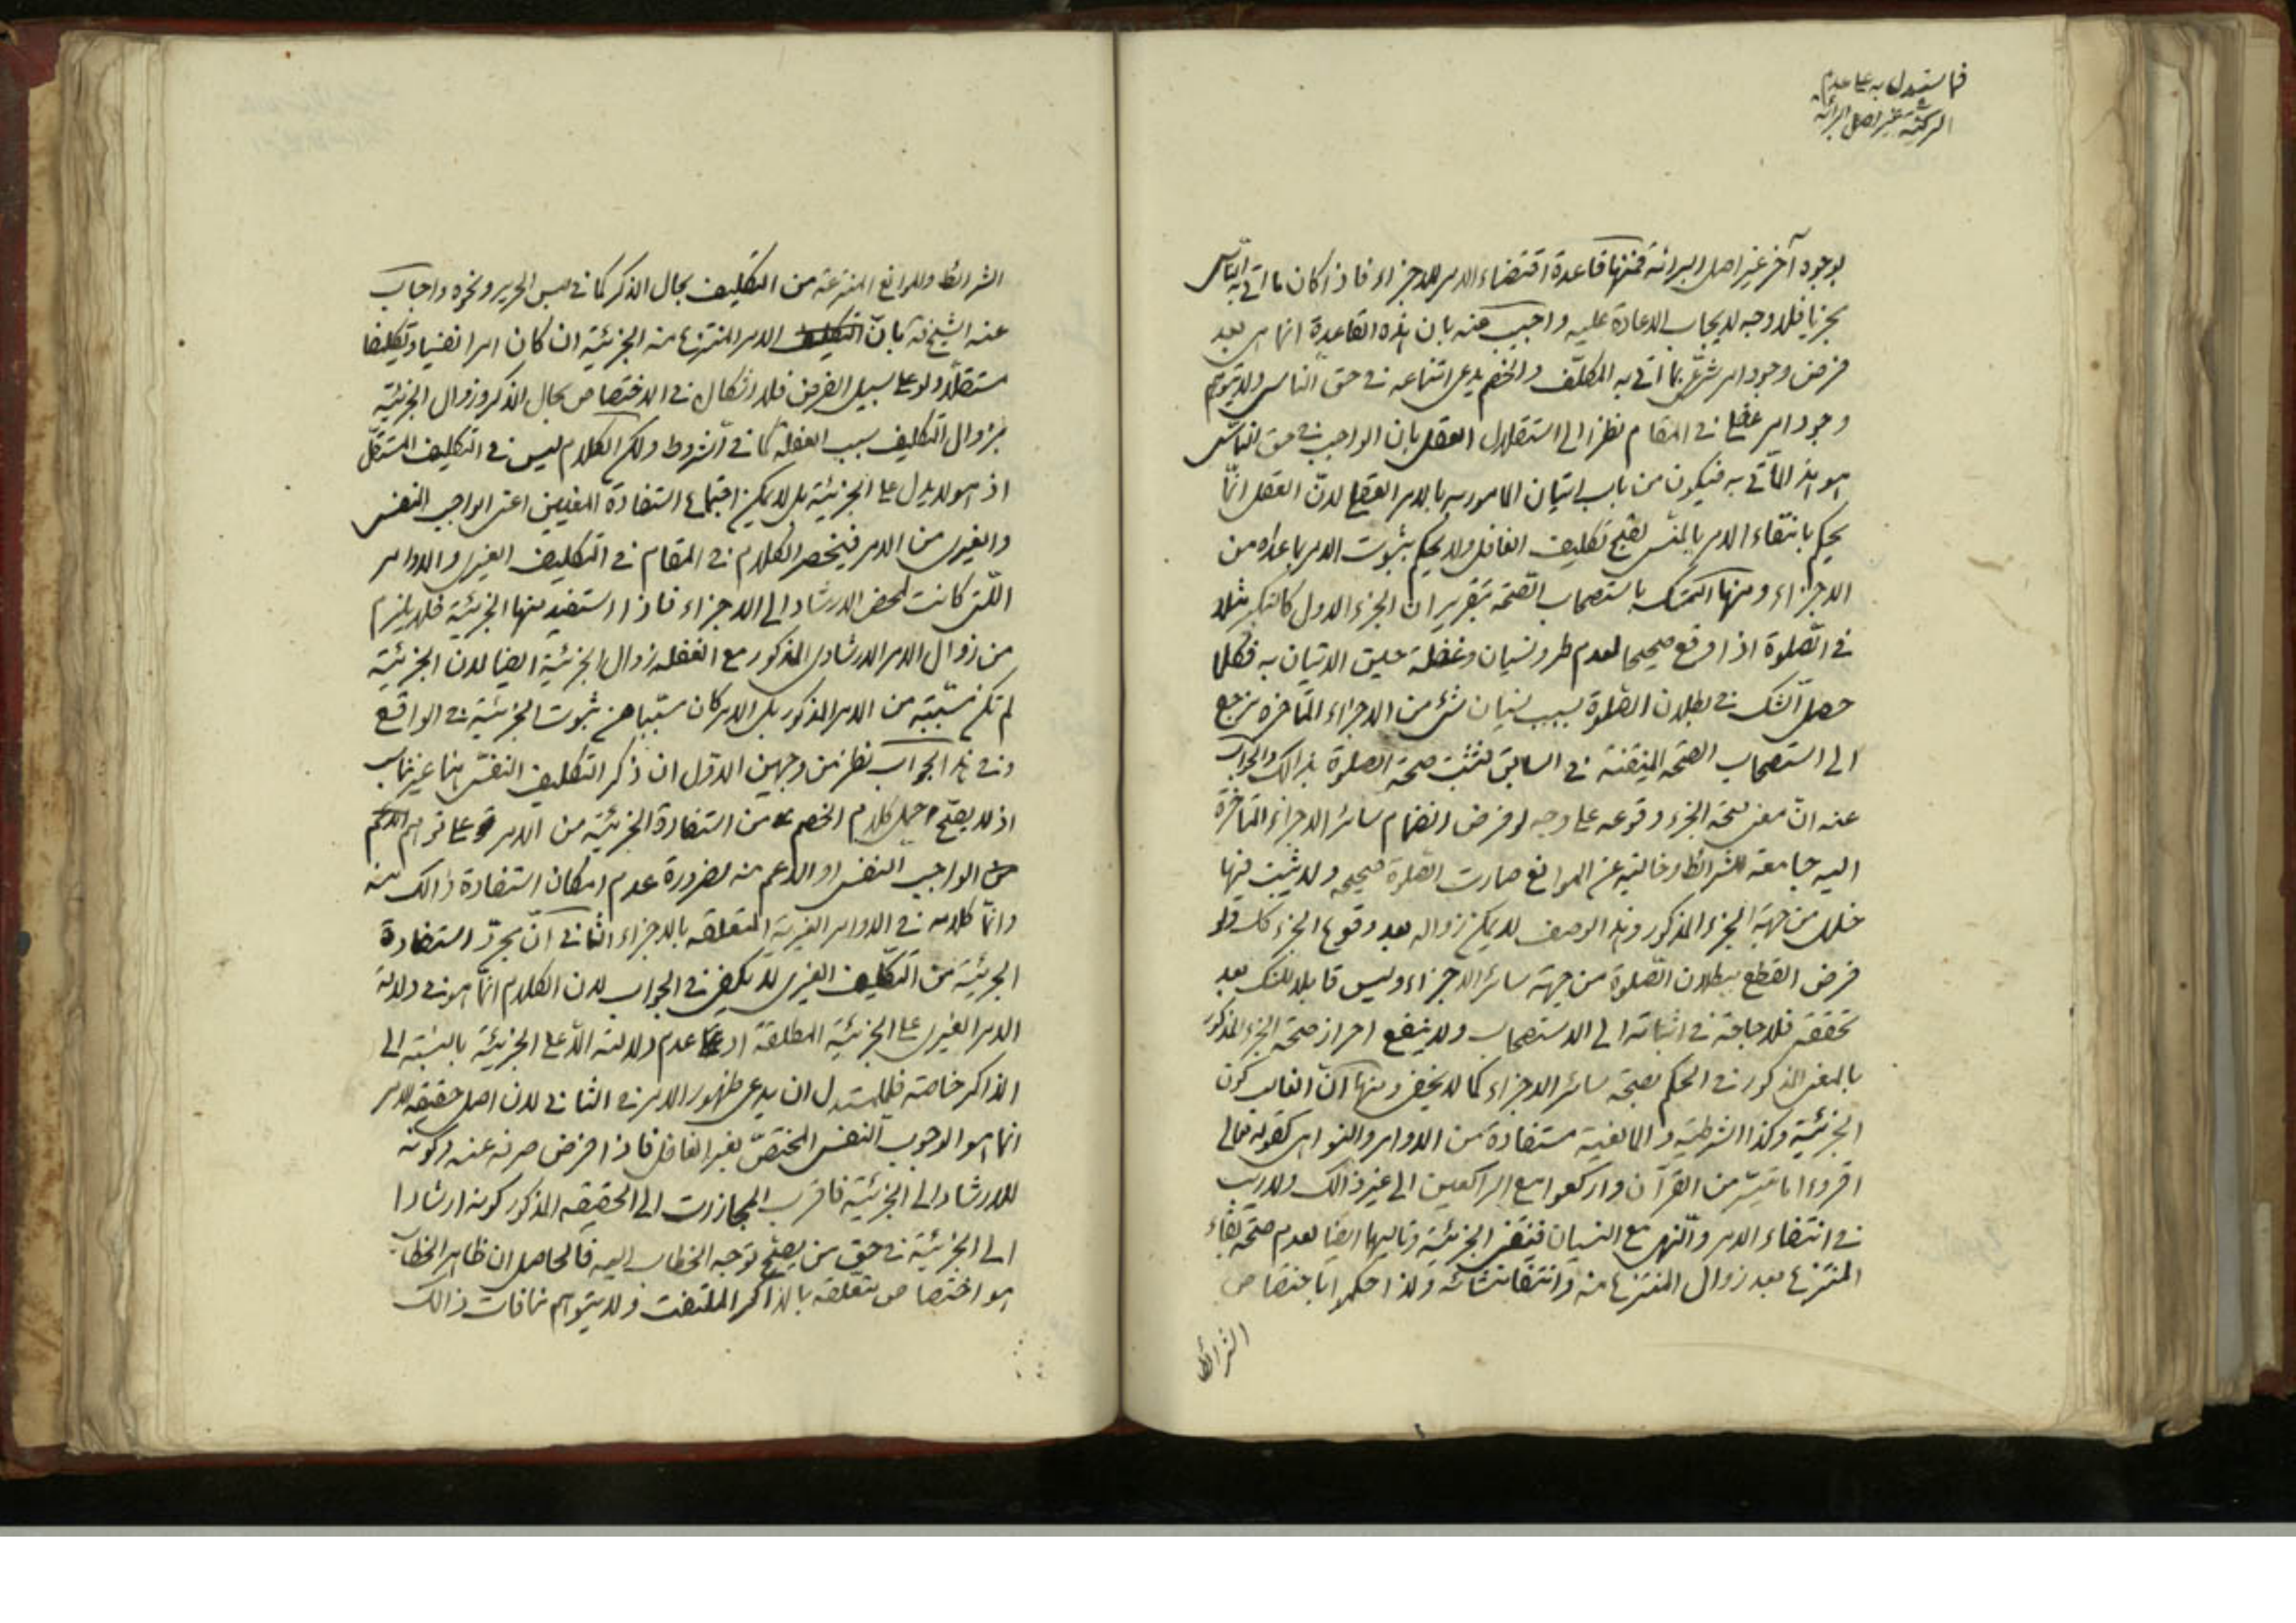 فما استدل به على عدم
الركنية غير اصل البرائة
بوجوه آخر غير اصل البرائة فمنها قاعدة اقتضاء الامر للاجزاء فاذا كان ما اتى به الناسى
مجزيا فلا وجه لايجاب الاعادة عليه واجيب عنه بان هذه القاعدة انما هى بعد
فرض وجود امر شرعى بما اتى به المكلف والخصم يدعى امتناعه فى حق الناسى ولا يتوهم
وجود امر عقلى فى المقام نظرا الى استقلال العقل بان الواجب فى حق الناسى
هو هذا المأتى به فيكون من باب اتيان المامور به بالامر العقلى لان العقل انما
يحكم بانتفاء الامر بالمنسى لقبح تكليف الغافل ولا يحكم بثبوت الامر بما عداه من
الاجزاء ومنها التمسك باستصحاب الصحة بتقرير ان الجزء الاول كالتكبير مثلا
فى الصلوة اذا وقع صحيحا لعدم طرو نسيان وغفلة حين الاتيان به فكلما
حصل الشك فى بطلان الصلوة بسبب نسيان شئ من الاجزاء المتاخرة نرجع
الى استصحاب الصحة المتيقنة فى السابق فتثبت صحة الصلوة بذالك والجواب
عنه ان معنى صحة الجزء وقوعه على وجه لو فرض انضمام سائر الاجزاء المتاخرة
اليه جامعة للشرائط وخالية عن الموانع صارت الصلوة صحيحة ولا يثبت فيها
خلل من جهة الجزء المذكور وهذا الوصف لا يمكن زواله بعد وقوع الجزء كك ولو
فرض القطع ببطلان الصلوة من جهة سائر الاجزاء وليس قابلا للشك بعد
تحققه فلا حاجة فى اثباته الى الاستصحاب ولا ينفع احراز صحة الجزء المذكور
بالمعنى المذكور فى الحكم بصحة سائر الاجزاء كما لا يخفى ومنها ان الغالب كون
الجزئية وكذا الشرطية والمانعية مستفادة من الاوامر والنواهى كقوله تعالى
اقرؤا ما تيسر من القرآن واركعوا مع الراكعين الى غير ذالك ولا ريب
فى انتفاء الامر والنهى مع النسيان فينتفى الجزئية وتالييها ايضا لعدم صحة بقاء
المنتزع بعد زوال المنتزع منه وانتفاء منشائه ولذا حكموا باختصاص
الشرائط
الشرائط والموانع المنتزعة من التكليف بحال الذكر كما فى لبس الحرير ونحوه واجاب
عنه الشيخ قه بان التكليف الامر المنتزع منه الجزئية ان كان امرا نفسيا وتكليفا
مستقلا ولو على سبيل الفرض فلا اشكال فى الاختصاص بحال الذكر وزوال الجزئية
بزوال التكليف بسبب الغفلة كما فى الشروط ولكن الكلام ليس فى التكليف المستقل
اذ هو لا يدل على الجزئية بل لا يمكن اجتماع استفادة المعنيين اعنى الواجب النفسى
والغيرى من الامر فينحصر الكلام فى المقام فى التكليف الغيرى والاوامر
اللتى كانت لمحض الارشاد الى الاجزاء فاذا استفيد منها الجزئية فلا يلزم
من زوال الامر الارشادى المذكور مع الغفلة زوال الجزئية ايضا لان الجزئية
لم تكن مسببة من الامر المذكور بل الامر كان مسببا عن ثبوت الجزئية فى الواقع
وفى هذا الجواب نظر من وجهين الاول ان ذكر التكليف النفسى هنا غير مناسب
اذ لا يصح حمل كلام الخصم من استفادة الجزئية من الامر على توهم الحكم
من الواجب النفسى او الاعم منه لضرورة عدم امكان استفادة ذالك منه
وانما كلامه فى الاوامر الغيرية المتعلقة بالاجزاء الثانى ان مجرد استفادة
الجزئية من التكليف الغيرى لا يكفى فى الجواب لان الكلام انما هو فى دلالة
الامر الغيرى على الجزئية المطلقة او عدم دلالته الا على الجزئية بالنسبة الى
الذاكر خاصة فللمستدل ان يدعى ظهور الامر فى الثانى لان اصل حقيقة الامر
انما هو الوجوب النفسى المختص بغير الغافل فاذا فرض صرفه عنه وكونه
للارشاد الى الجزئية فاقرب المجازات الى الحقيقة المذكور كونه ارشادا
الى الجزئية فى حق من يصح توجه الخطاب اليه فالحاصل ان ظاهر الخطاب
هو اختصاص تعلقه بالذاكر الملتفت ولا يتوهم منافات ذالك